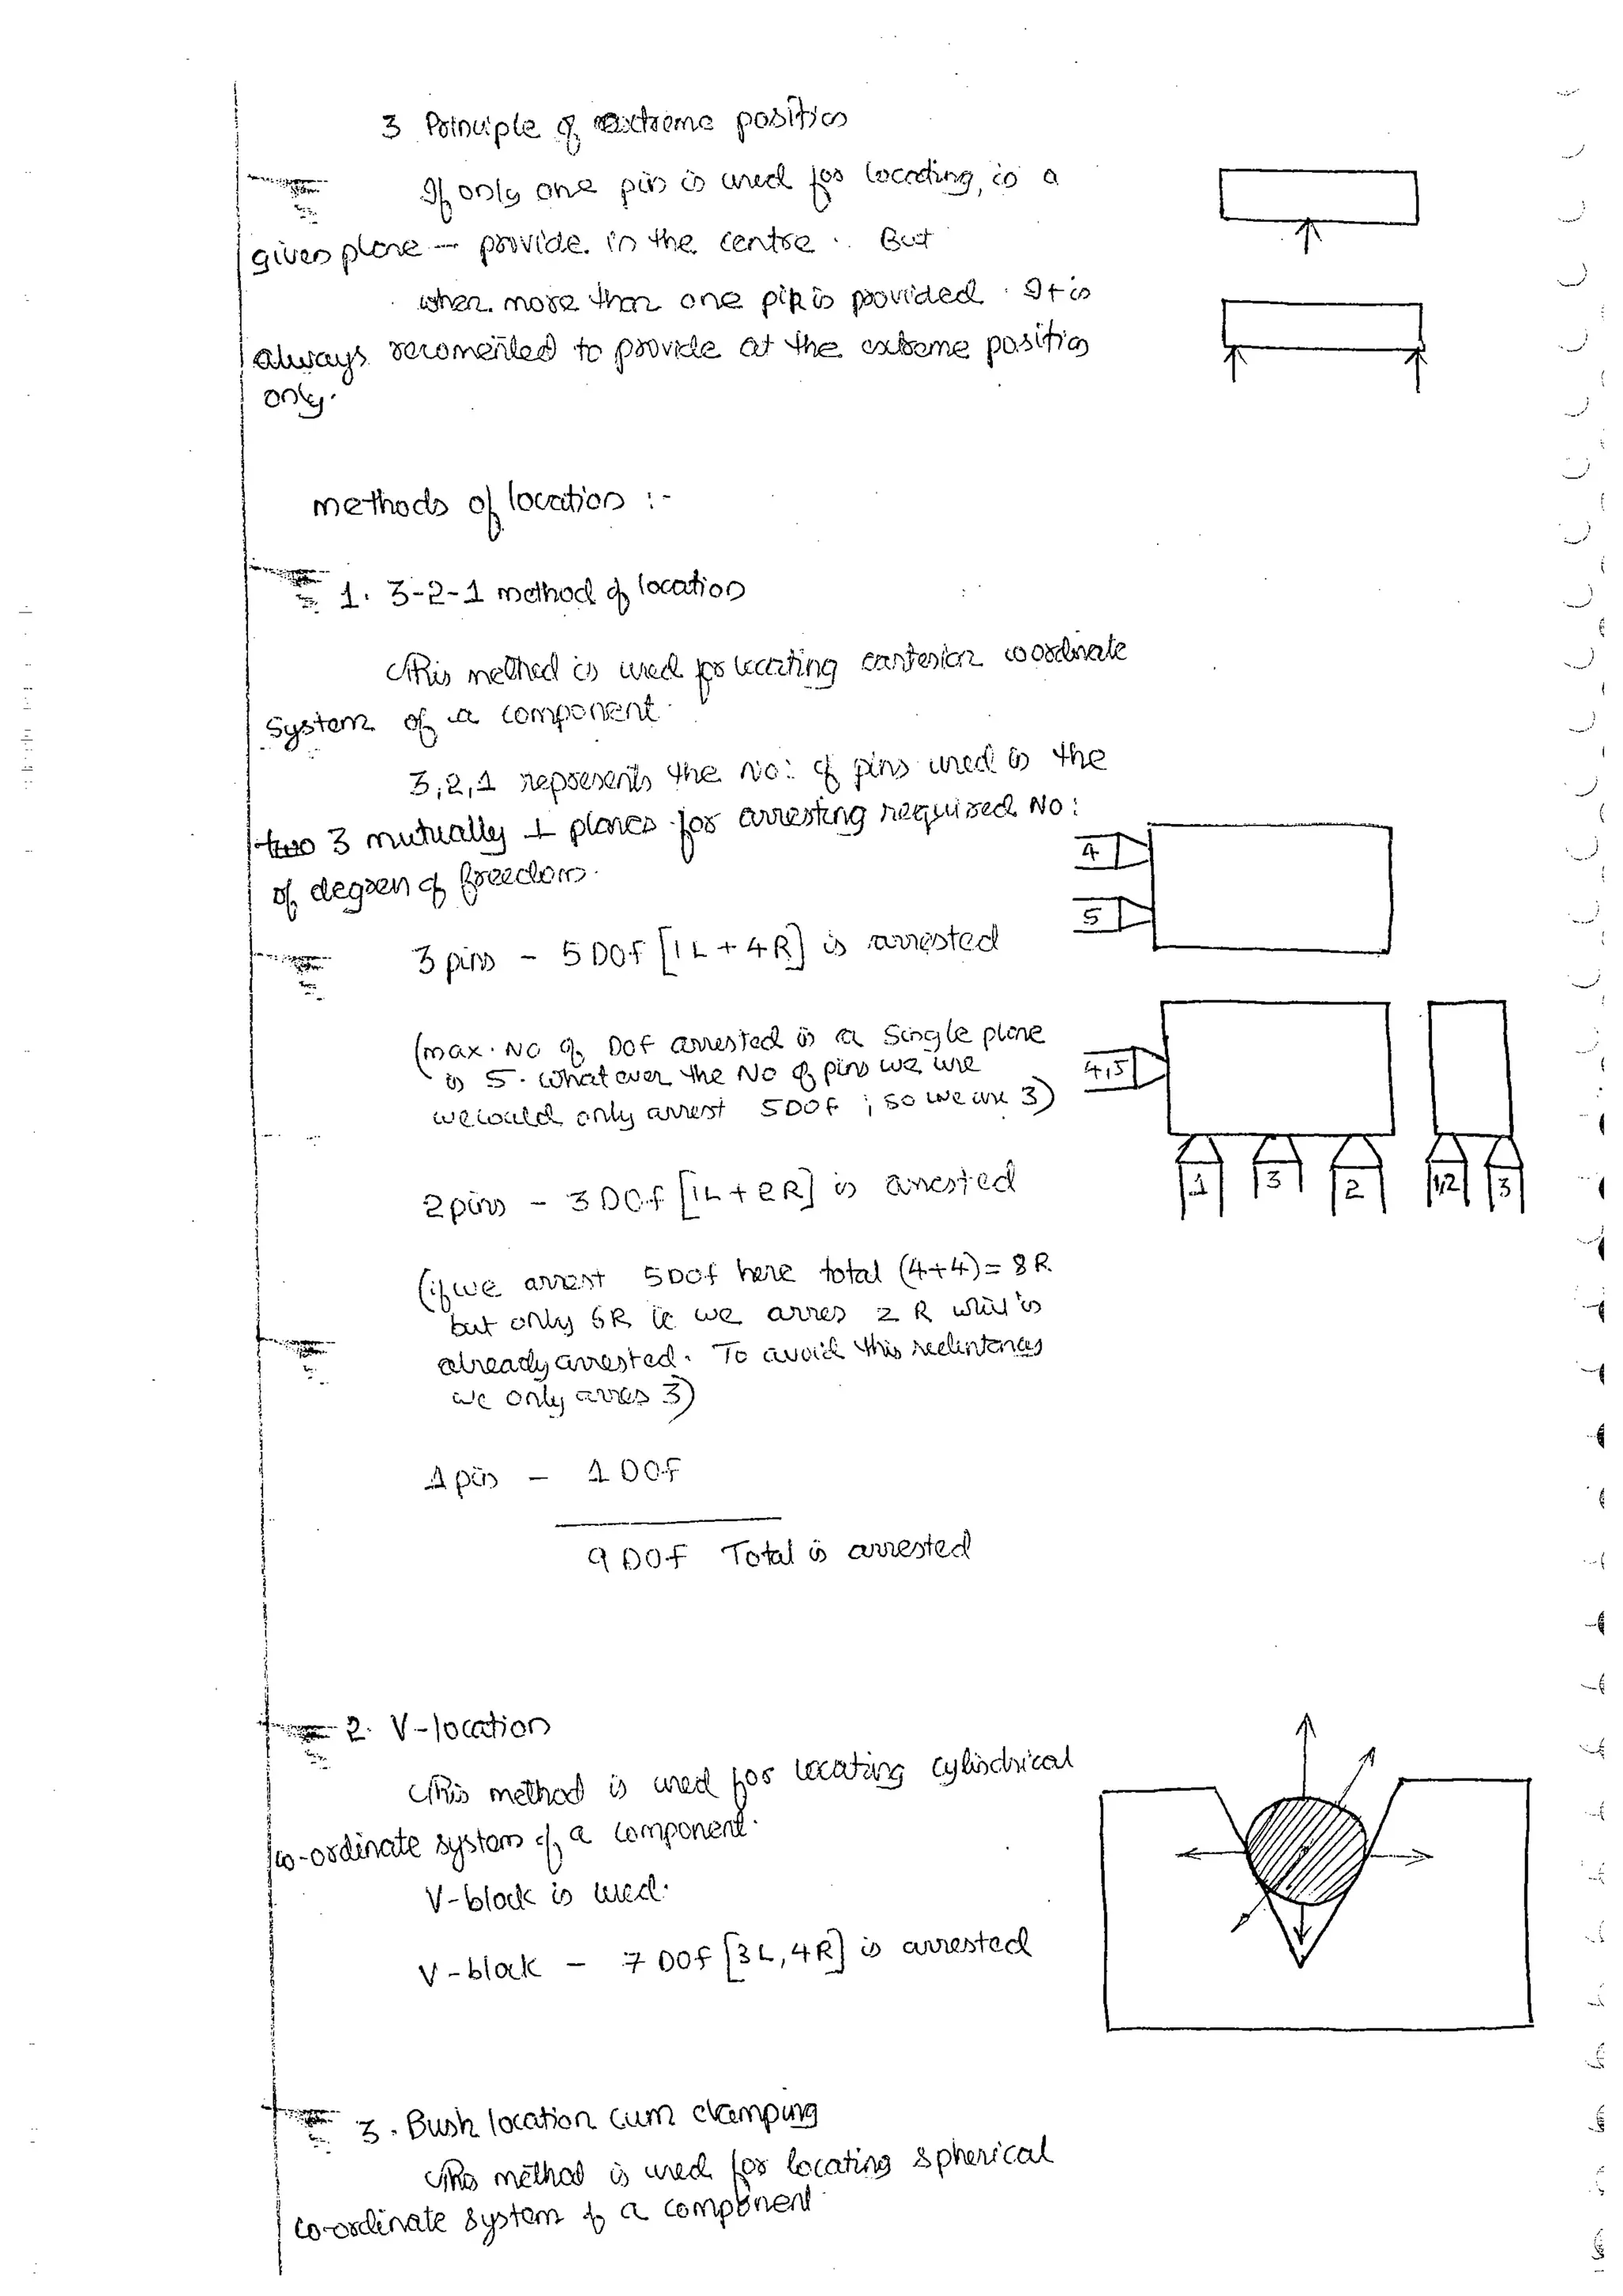 3. Principle of extreme position
If only one pin is used for locating, in a
given plane - provide in the centre. But
when more than one pin is provided. It is
always recomended to provide at the extreme position
only.
methods of location :-
1. 3-2-1 method of location
This method is used for locating cartesian coordinate
system of a component.
3,2,1 represents the No: of pins used in the
two 3 mutually ⊥ planes for arresting required No:
of degree of freedom.
4
5
3 pins - 5 DOF [1L + 4R] is arrested
(max. No of DOF arrested in a single plane
is 5. whatever the No of pins we use
we would only arrest 5DOF ; so we use 3)
4,5
1
3
2
1,2
3
2 pins - 3 DOF [1L + 2R] is arrested
(if we arrest 5DOF here total (4+4) = 8R
but only 6R ie we arres 2 R which is
already arrested. To avoid this redintancy
we only arres 3)
1 pin - 1 DOF
9 DOF Total is arrested
2. V-location
This method is used for locating cylindrical
co-ordinate system of a component.
V-block is used.
V-block - 7 DOF [3L, 4R] is arrested
3. Bush location cum clamping
This method is used for locating spherical
co-ordinate system of a component